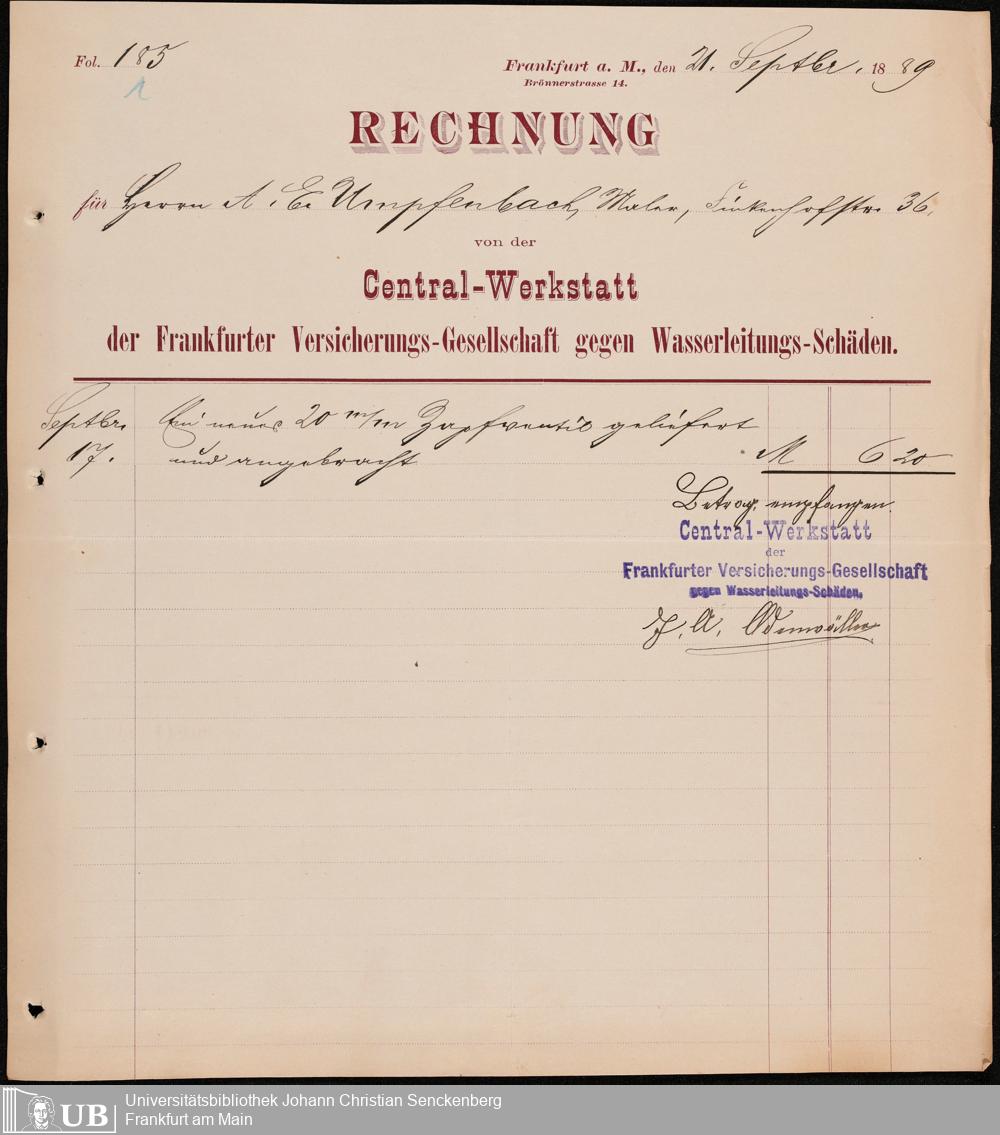 Fol. 185
1
Frankfurt a. M., den 21. Septbr. 1889
Brönnerstrasse 14.
RECHNUNG
für Herrn A. E. Umpfenbach, Maler, Finkenhofstr. 36.
von der
Central-Werkstatt
der Frankfurter Versicherungs-Gesellschaft gegen Wasserleitungs-Schäden.
Septbr. Ein neues 20 m/m Zapfventil geliefert
17. und angebracht M 6 20
Betrag empfangen.
Central-Werkstatt
der
Frankfurter Versicherungs-Gesellschaft
gegen Wasserleitungs-Schäden.
J. A. Odenwäller
UB
Universitätsbibliothek Johann Christian Senckenberg
Frankfurt am Main